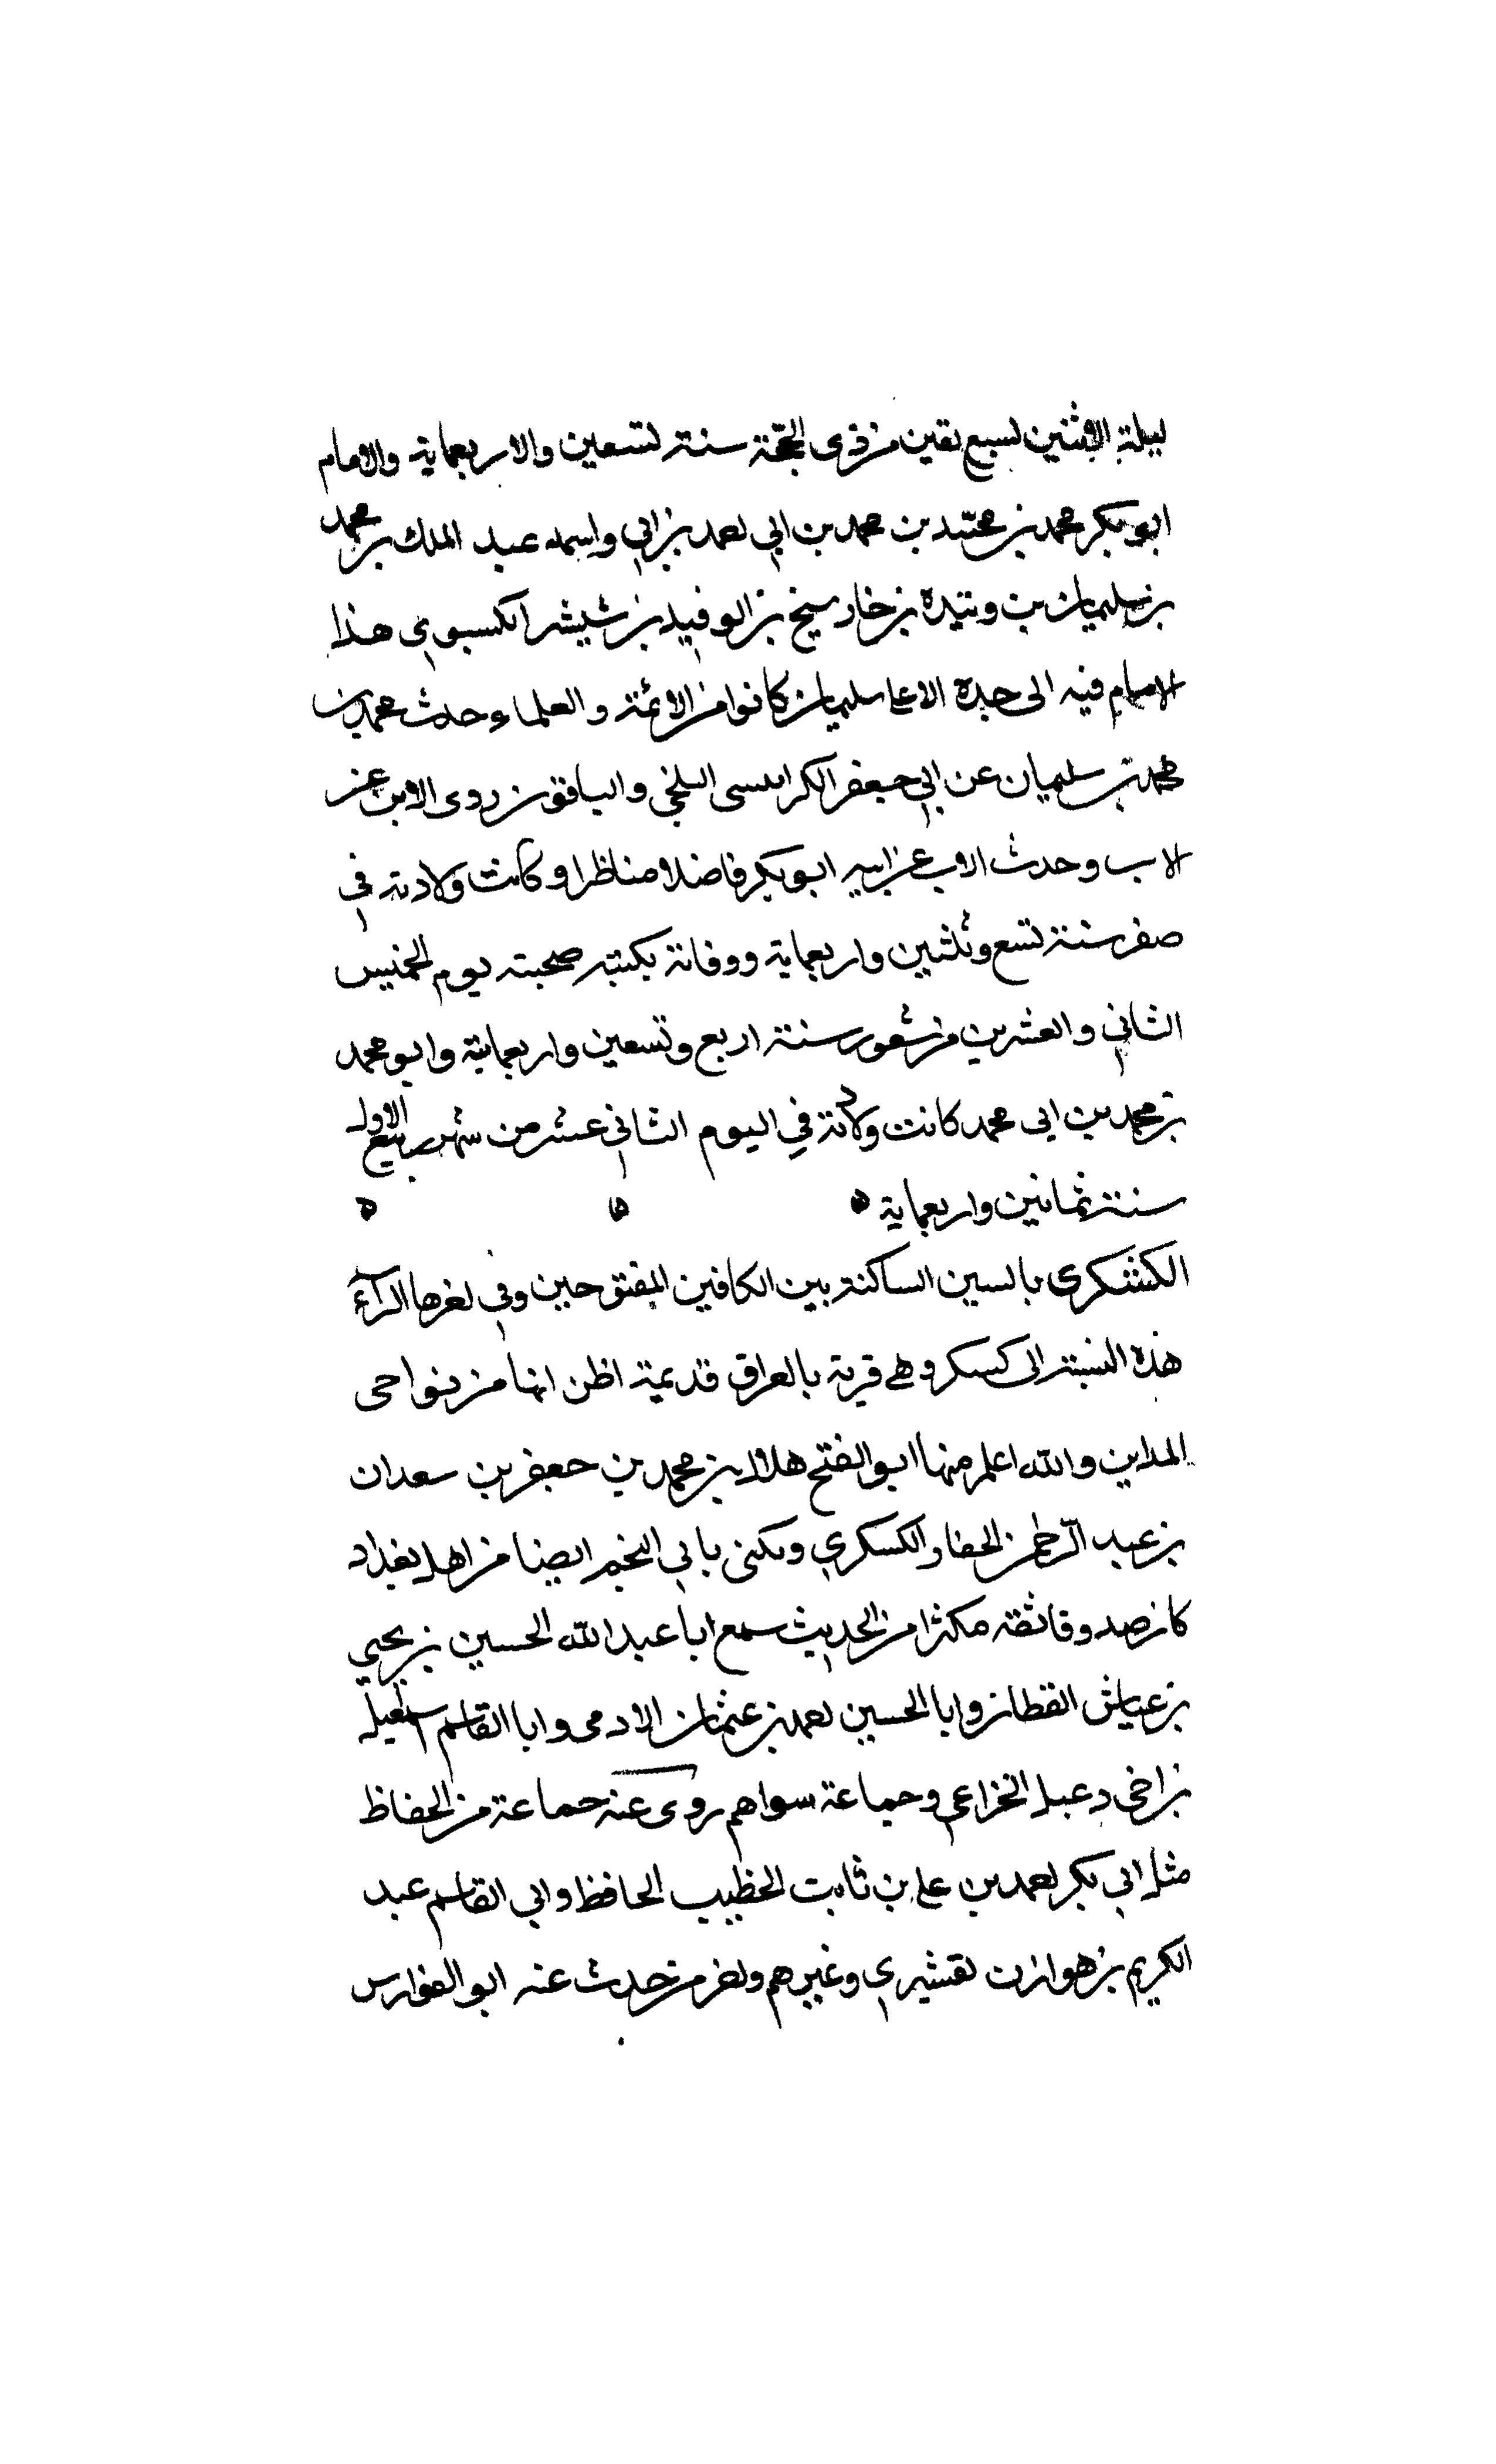 ليلة الاثنين لسبع بقين من ذى الحجة سنة تسعين والاربعماية والامام
ابو بكر محمد بن محمد بن محمد بن ابي احمد بن ابي واسمه عبد الملك بن محمد
بن سليمان بن وتيدة بن خار سبخ بن الوفيد بن شيشر الكسبوي هذا
الامام فيه الى جده الاعلى سليمان كانوا من الائمة والعلماء حدث محمد بن
محمد بن سليمان عن ابي جعفر الكرابيسى البلخي والباقون روى الابن عن
الاب وحدث الاب عن ابيه ابو بكر فاضلا مناظرا وكانت ولادته في
صفر سنة تسع وثلثين واربعماية ووفاته بكتبه صحبته يوم الخميس
الثاني والعشرين من شهور سنة اربع وتسعين واربعماية وابو محمد
بن محمد بن ابى محمد كانت ولادته في اليوم الثاني عشر من شهر ربيع الاول
سنة ثمانين واربعماية ه ه ه
الكشكرى بالسين الساكنة بين الكافين المفتوحين وفي اخرها الرآء
هذه النسبة الى كسكر وهى قرية بالعراق قديمة اظن انها من نواحى
المداين والله اعلم منها ابو الفتح هلال بن محمد بن جعفر بن سعدان
بن عبد الرحمن الحفار الكسكري ويكنى بابي النجم ايضا من اهل بغداد
كان صدوقا ثقة مكثرا من الحديث سمع ابا عبد الله الحسين بن يحيي
بن عياش القطان وابا الحسين احمد بن عثمان الادمى وابا القاسم اسمعيل
بن اخى دعبل الخزاعي وجماعة سواهم روى عنه جماعة من الحفاظ
مثل ابي بكر احمد بن على بن ثابت الخطيب الحافظ وابي القاسم عبد
الكريم بن هوازن لقشيري وغيرهم واخر من حدث عنه ابو الفوارس